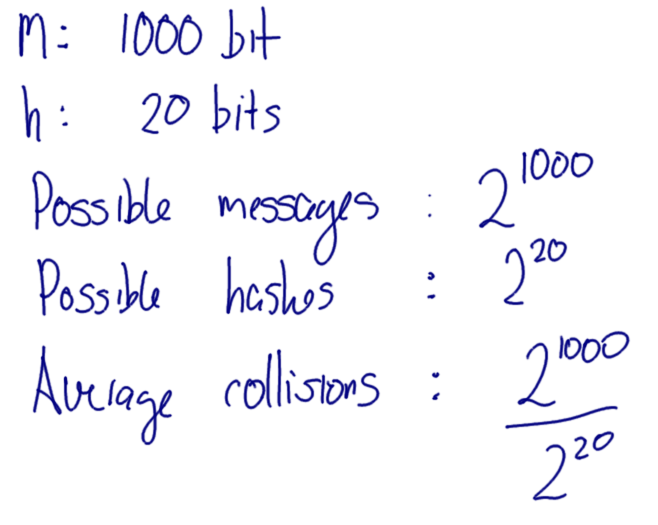 m: 1000 bit
h: 20 bits
Possible messages : 2^1000
Possible hashes : 2^20
Average collisions : 2^1000 / 2^20